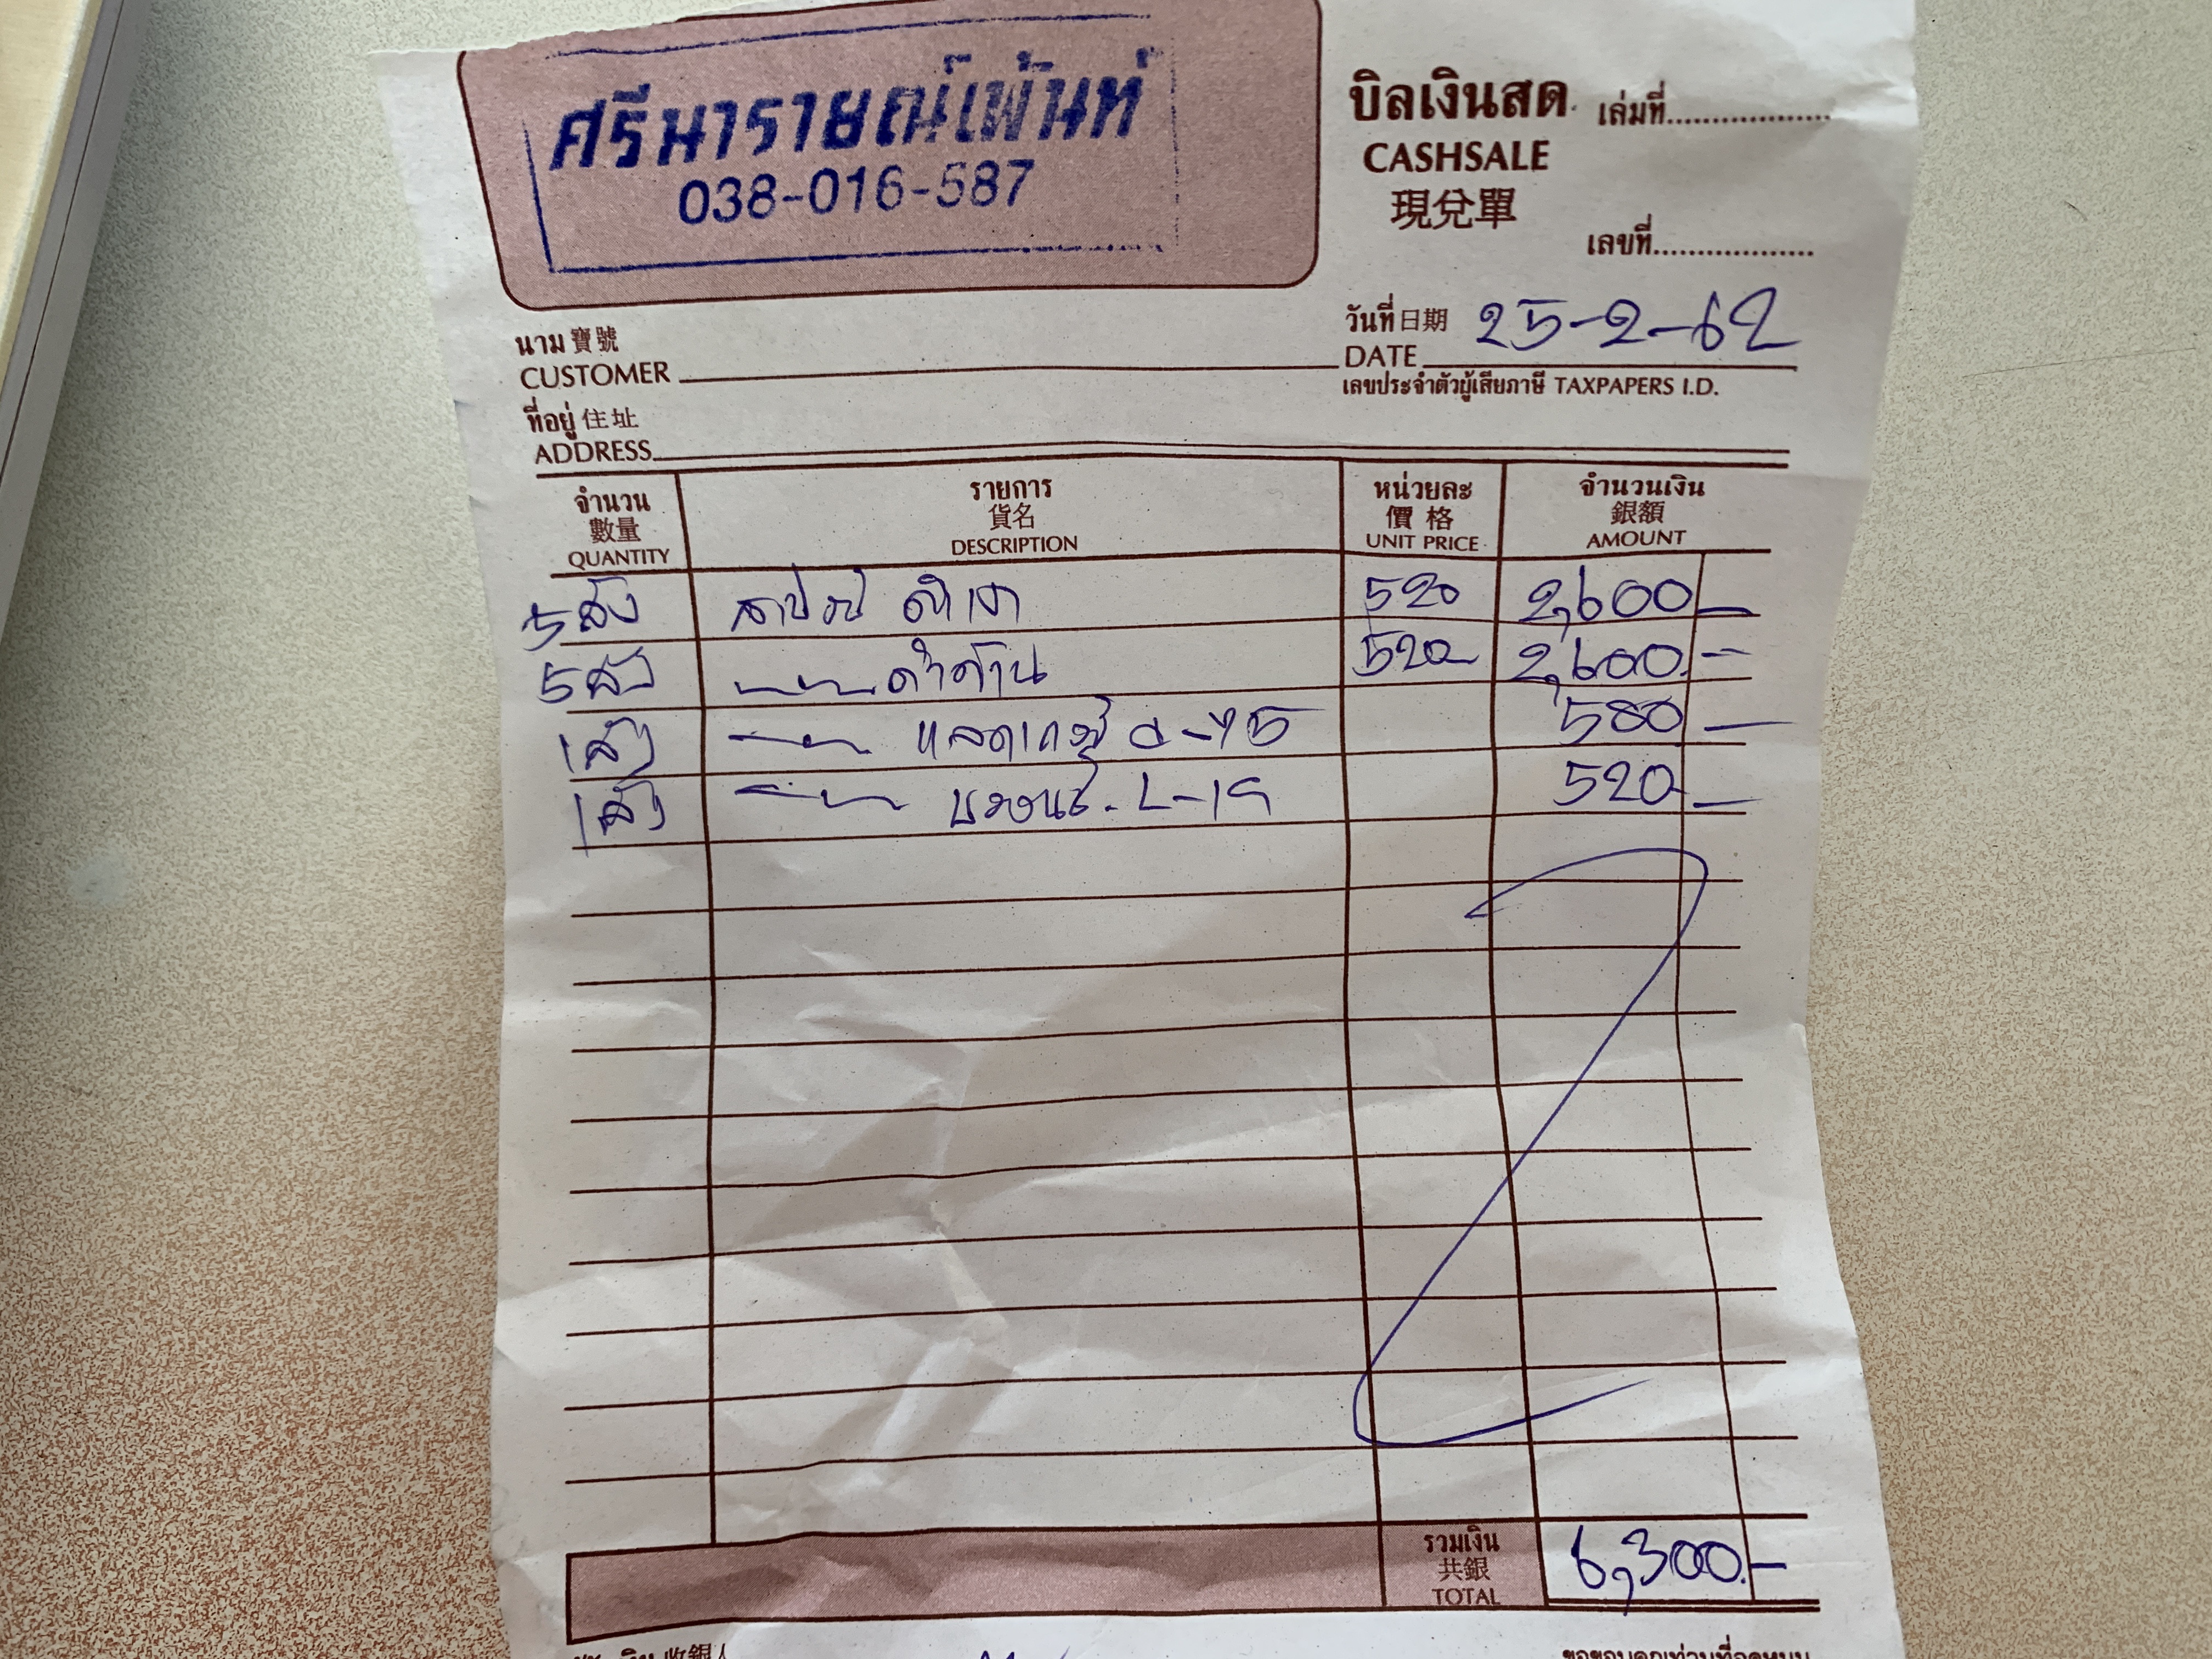 ศรีนารายณ์เพ้นท์
038-016-587
บิลเงินสด เล่มที่
CASHSALE
現兌單
เลขที่
นาม 寶號
CUSTOMER
วันที่ 日期 25-2-62
DATE
เลขประจำตัวผู้เสียภาษี TAXPAPERS I.D.
ที่อยู่ 住址
ADDRESS
จำนวน รายการ หน่วยละ จำนวนเงิน
數量 貨名 價格 銀額
QUANTITY DESCRIPTION UNIT PRICE AMOUNT
5 ถัง ดำเงา 520 2,600
5 ถัง ดำด้าน 520 2,600
1 ถัง 580
1 ถัง บรอนซ์ 520
รวมเงิน
共銀
TOTAL 6,300.-
收銀人
ขอขอบคุณท่านที่อุดหนุน